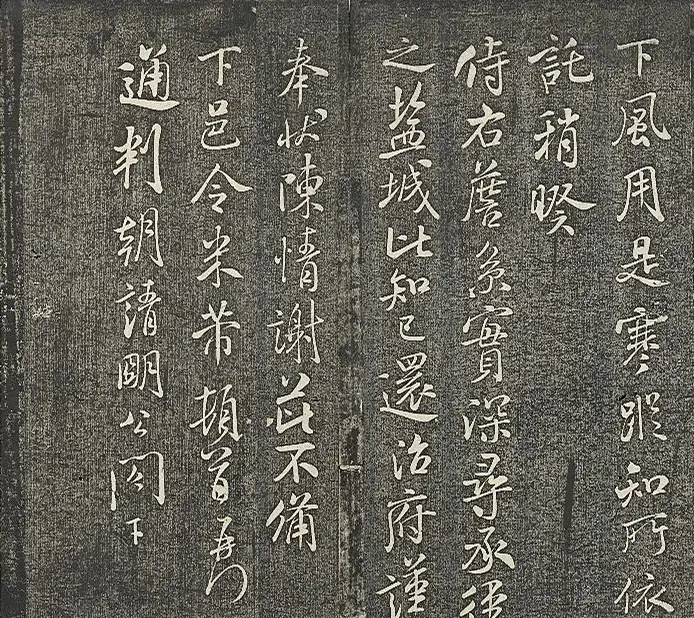 下風用是寒蹤知所依
託稍暌
侍右詹系實深尋承
之鹽城比知已還治府謹
奉狀陳情謝茲不備
下邑令米芾頓首再拜
通判朝請明公閤下